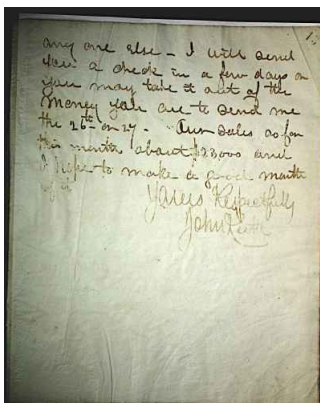 any one else - I will send
you a check in a few days or
you may take it out of the
money you are to send me
the 26th or 27. - Our Sales so far
this month about $23000 and
I hope to make a good month
of it
Yours Respectfully
John